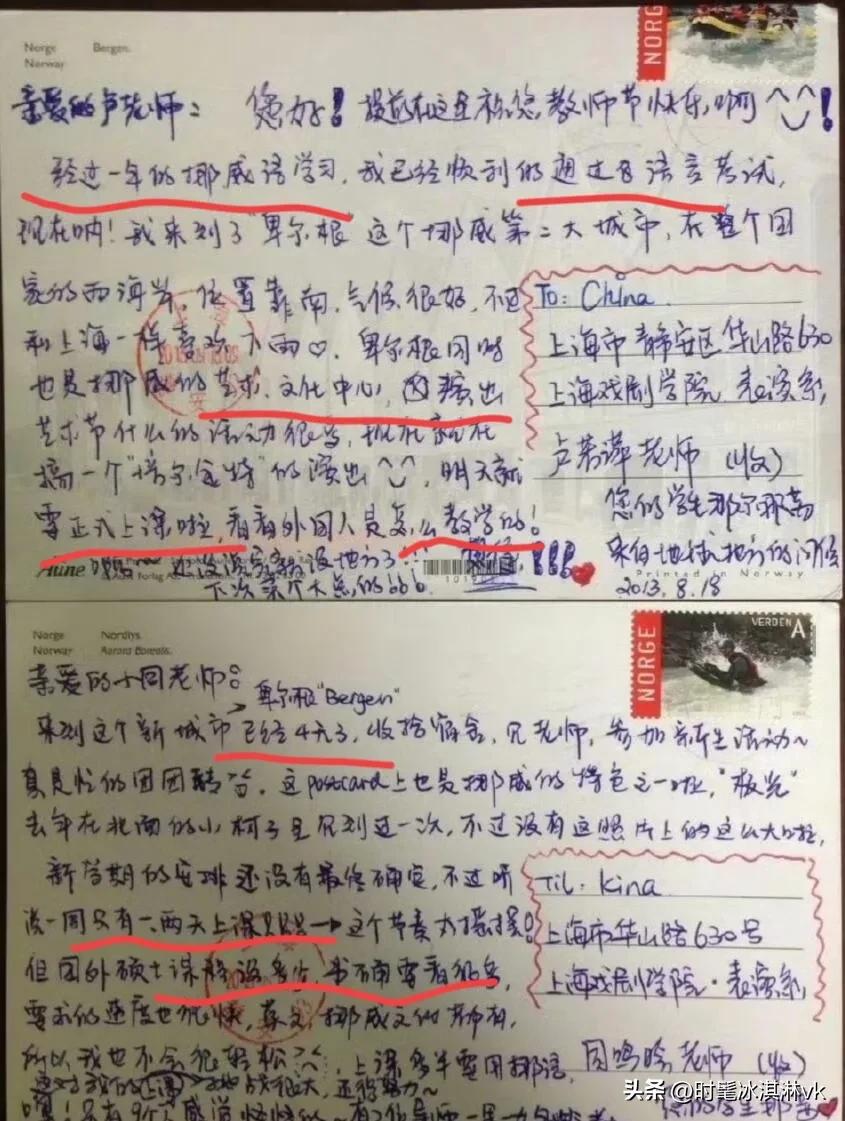 Norge Bergen.
Norway
NORGE
亲爱的卢老师： 您好！提前在这里祝您教师节快乐，啊 ^^！
经过一年的挪威语学习，我已经顺利的通过B语言考试，
现在呐！我来到了“卑尔根”这个挪威第二大城市，在整个国
家的西海岸，位置靠南，气候很好，不过
和上海一样喜欢下雨♡．卑尔根同时
也是挪威的艺术、文化中心，演出
艺术节什么的活动很多，现在就在
搞一个“培尔·金特”的演出^^，明天就
要正式上课啦，看看外国人是怎么教学的！
还没说完就没地方了
下次来个大点的
To: China
上海市静安区华山路630
上海戏剧学院 表演系，
卢若萍老师 (收)
您的学生那尔那茜
来自地球 地方的问候
2013. 8. 18
Aune Forlag
Printed in Norway
Norge Nordlys.
Norway Aurora Borealis.
NORGE VERDEN A
亲爱的小周老师：
卑尔根“Bergen”
来到这个新城市已经4天了，收拾宿舍，见老师，参加新生活动~
真是忙的团团转．这postcard上也是挪威的特色之一啦，“极光”
去年在北面的小村子里见到过一次，不过没有这照片上的这么大啦，
新学期的安排还没有最终确定，不过听
说一周只有一、两天上课 → 这个节奏
但国外硕士课程没多少，书不需要看很多，
要求的速度也很快，英文，挪威文他都有，
所以我也不会很轻松，上课多半要用挪语，
还得努力~
Til: Kina
上海市华山路630号
上海戏剧学院·表演系，
周鸣晗老师 (收)
您的学生那茜
头条 @时髦冰淇淋vk